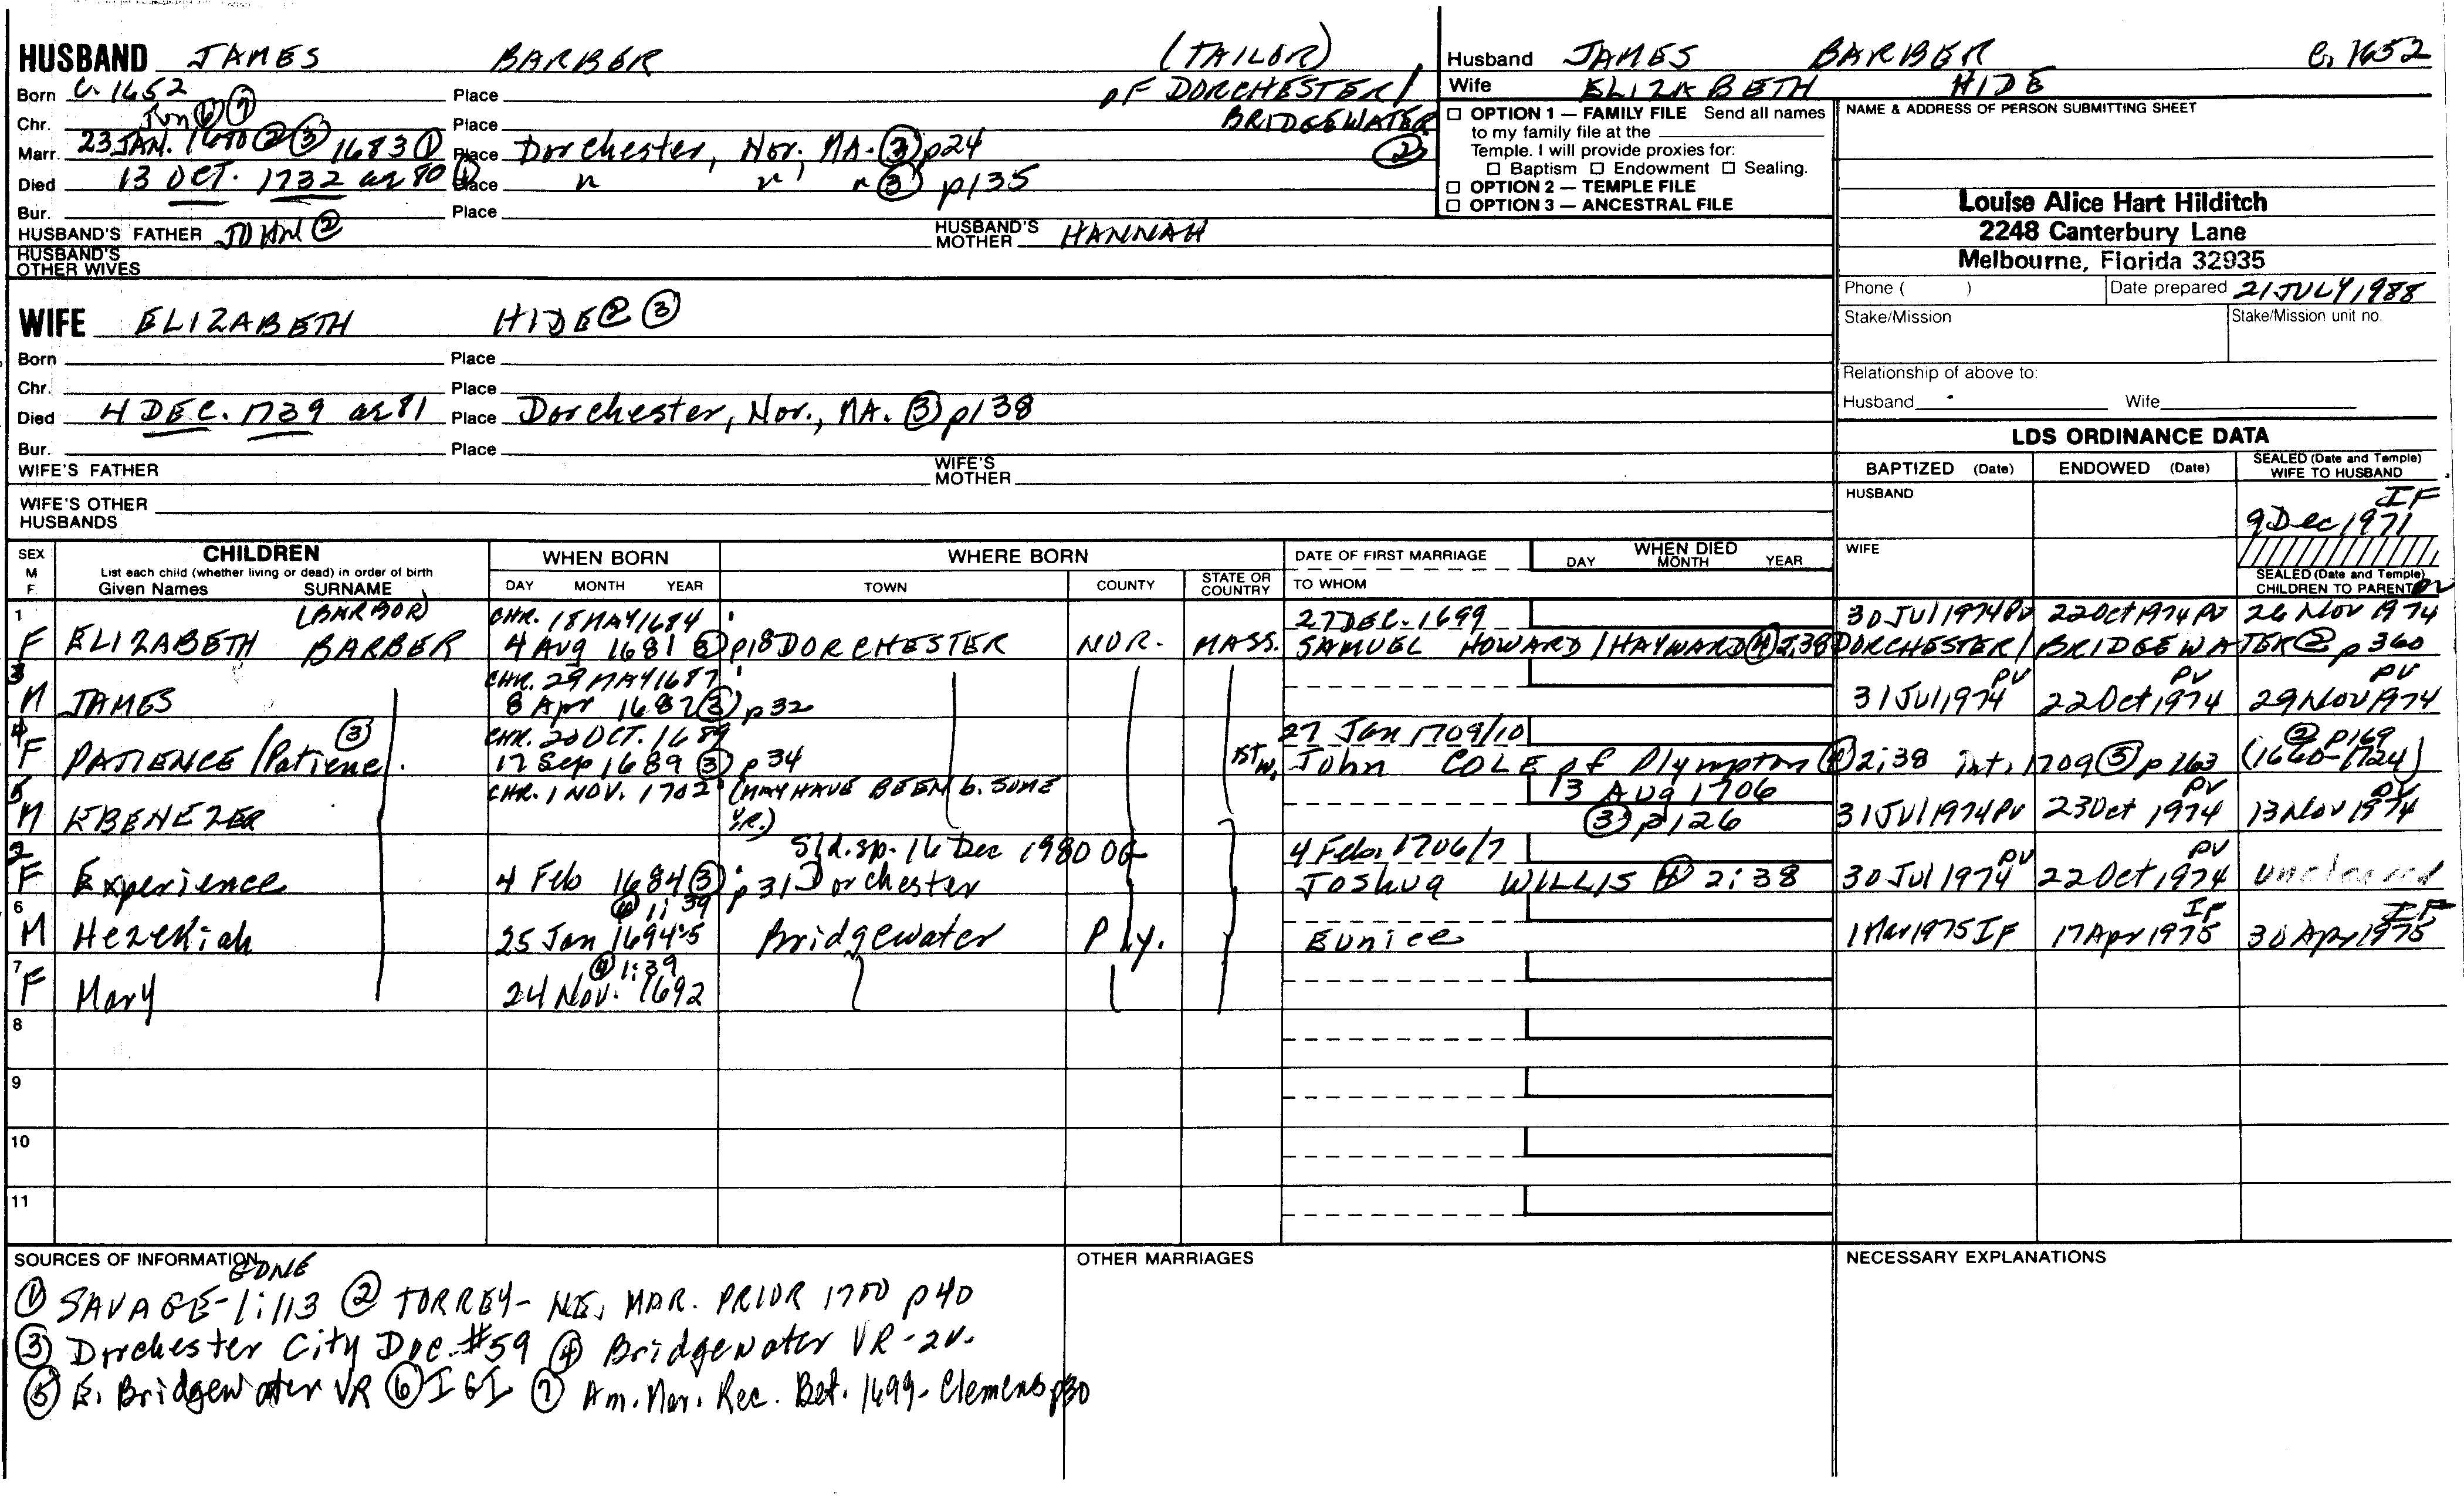 HUSBAND JAMES BARBER (TAILOR)
Born C. 1652 Place OF DORCHESTER/
Chr. Jun ⑥ ⑦ Place BRIDGEWATER ②
Marr. 23 JAN. 1680 ② ③ 1683 ① Place Dorchester, Nor., MA. ③ p24
Died 13 OCT. 1732 ae 80 ① Place " " " ③ p135
Bur. Place
HUSBAND'S FATHER JOHN ② HUSBAND'S MOTHER HANNAH
HUSBAND'S OTHER WIVES
WIFE ELIZABETH HIDE ② ③
Born Place
Chr. Place
Died 4 DEC. 1739 ae 81 Place Dorchester, Nor., MA. ③ p138
Bur. Place
WIFE'S FATHER WIFE'S MOTHER
WIFE'S OTHER HUSBANDS
Husband JAMES BARBER C. 1652
Wife ELIZABETH HIDE
☐ OPTION 1 — FAMILY FILE Send all names
to my family file at the
Temple. I will provide proxies for:
☐ Baptism ☐ Endowment ☐ Sealing.
☐ OPTION 2 — TEMPLE FILE
☐ OPTION 3 — ANCESTRAL FILE
NAME & ADDRESS OF PERSON SUBMITTING SHEET
Louise Alice Hart Hilditch
2248 Canterbury Lane
Melbourne, Florida 32935
Phone ( ) Date prepared 21 JULY 1988
Stake/Mission Stake/Mission unit no.
Relationship of above to:
Husband Wife
LDS ORDINANCE DATA
BAPTIZED (Date) ENDOWED (Date) SEALED (Date and Temple) WIFE TO HUSBAND
HUSBAND IF
9 Dec 1971
WIFE
SEALED (Date and Temple) CHILDREN TO PARENTS
SEX M F CHILDREN List each child (whether living or dead) in order of birth Given Names SURNAME
WHEN BORN DAY MONTH YEAR
WHERE BORN TOWN COUNTY STATE OR COUNTRY
DATE OF FIRST MARRIAGE TO WHOM
WHEN DIED DAY MONTH YEAR
1 (BARBOR) CHR. 18 MAY 1684 27 DEC. 1699 30 Jul 1974 PV 22 Oct 1974 PV 26 Nov 1974
F ELIZABETH BARBER 4 Aug 1681 ③ p18 DORCHESTER NOR. MASS. SAMUEL HOWARD/HAYWARD ④ 2:38 DORCHESTER/BRIDGEWATER ② p360
3 CHR. 29 MAY 1687 PV PV PV
M JAMES 8 Apr 1687 ③ p32 31 Jul 1974 22 Oct 1974 29 Nov 1974
4 ③ CHR. 20 OCT. 1689 27 Jan 1709/10 ② p169
F PATIENCE/Patienc. 17 Sep 1689 ③ p34 1st W. John COLE of Plympton ④ 2:38 int. 1709 ⑤ p263 (1660-1724)
5 CHR. 1 NOV. 1702 (MAY HAVE BEEN b. SOME 13 Aug 1706 PV PV
M EBENEZER YR.) ③ p126 31 Jul 1974 PV 23 Oct 1974 13 Nov 1974
2 Sld. sp. 16 Dec 1980 OG 4 Feb. 1706/7 PV PV
F Experience 4 Feb 1684 ③ p31 Dorchester Joshua WILLIS ④ 2:38 30 Jul 1974 22 Oct 1974 Uncleared
6 ④ 1:39 IF IF
M Hezekiah 25 Jan 1694-5 Bridgewater Ply. Eunice 1 Mar 1975 IF 17 Apr 1975 30 Apr 1975
7 ④ 1:39
F Mary 24 Nov. 1692
8
9
10
11
SOURCES OF INFORMATION GONE
① SAVAGE-1:113 ② TORREY- NE. MAR. PRIOR 1700 p40
③ Dorchester City Doc. #59 ④ Bridgewater VR-2V.
⑤ E. Bridgewater VR ⑥ IGI ⑦ Am. Mar. Rec. Bef. 1699-Clemens p30
OTHER MARRIAGES
NECESSARY EXPLANATIONS